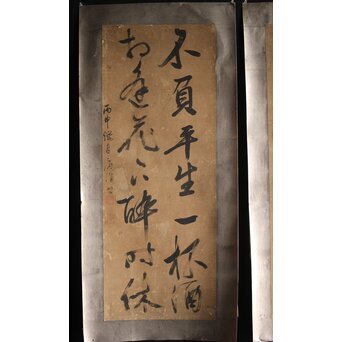 不負平生一杯酒
相逢花下醉時休
丙申